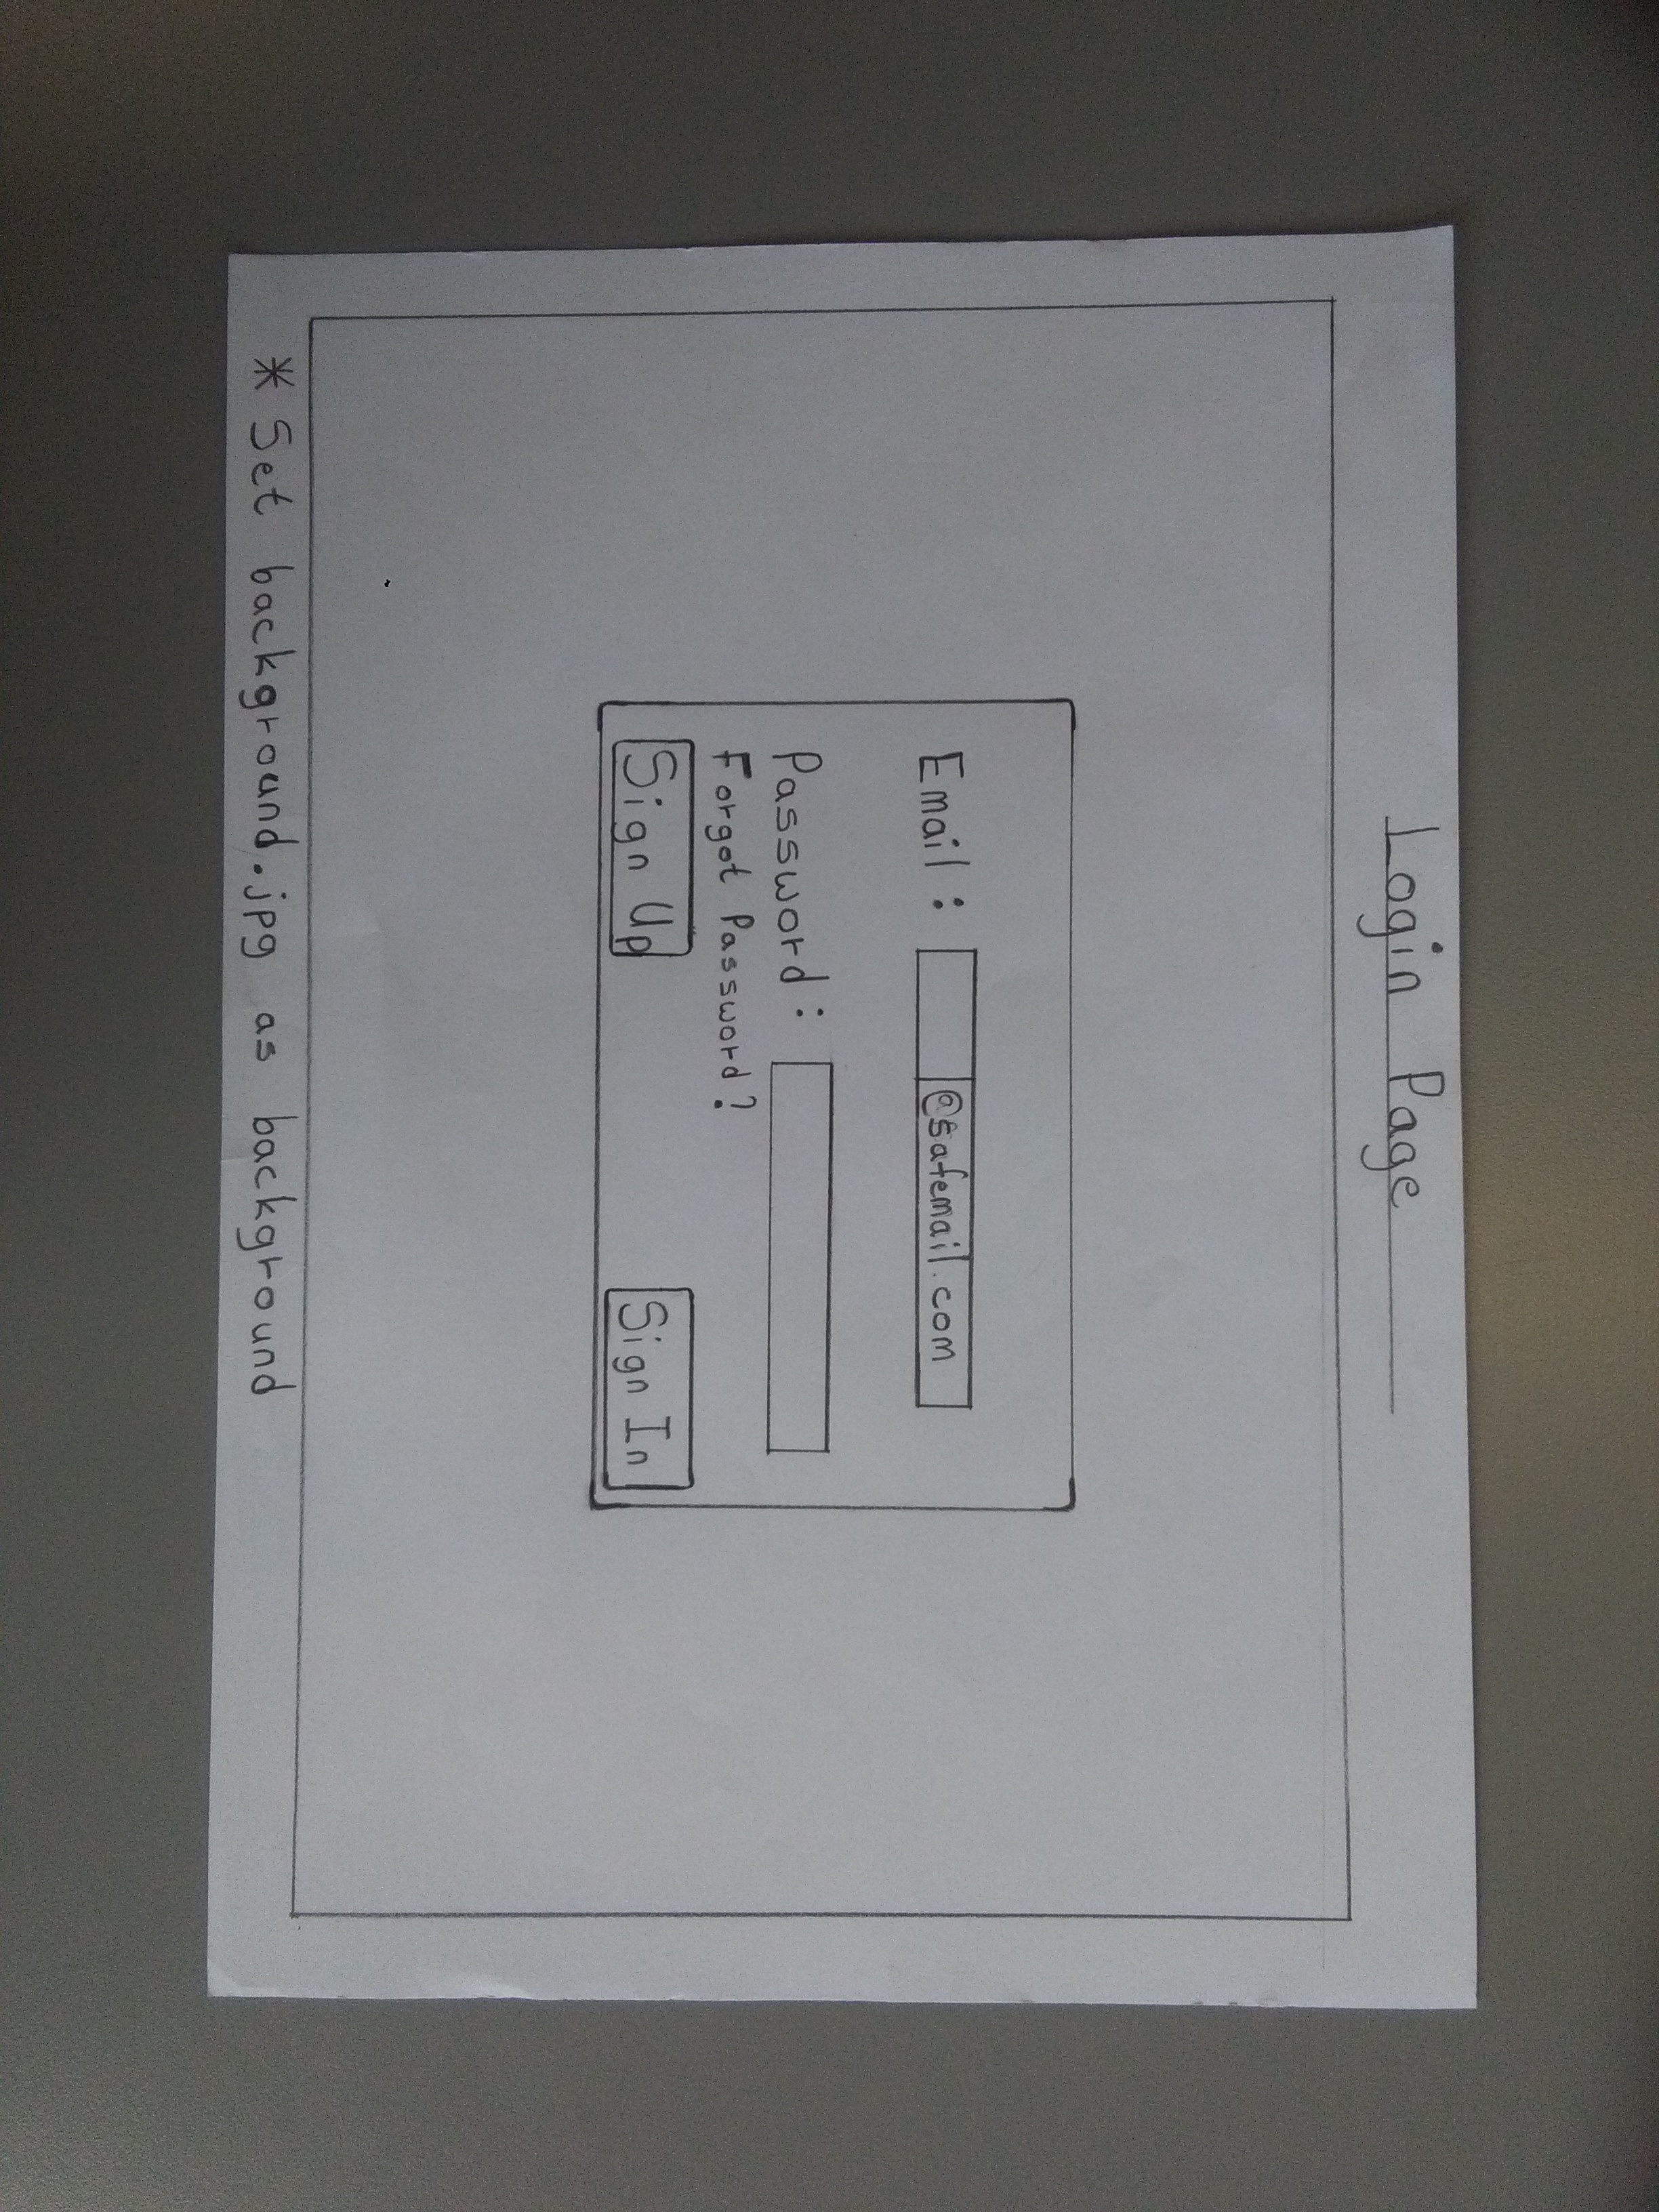 Login Page
Email :
@safemail.com
Password :
Forgot Password?
Sign Up
Sign In
* Set background.jpg as background